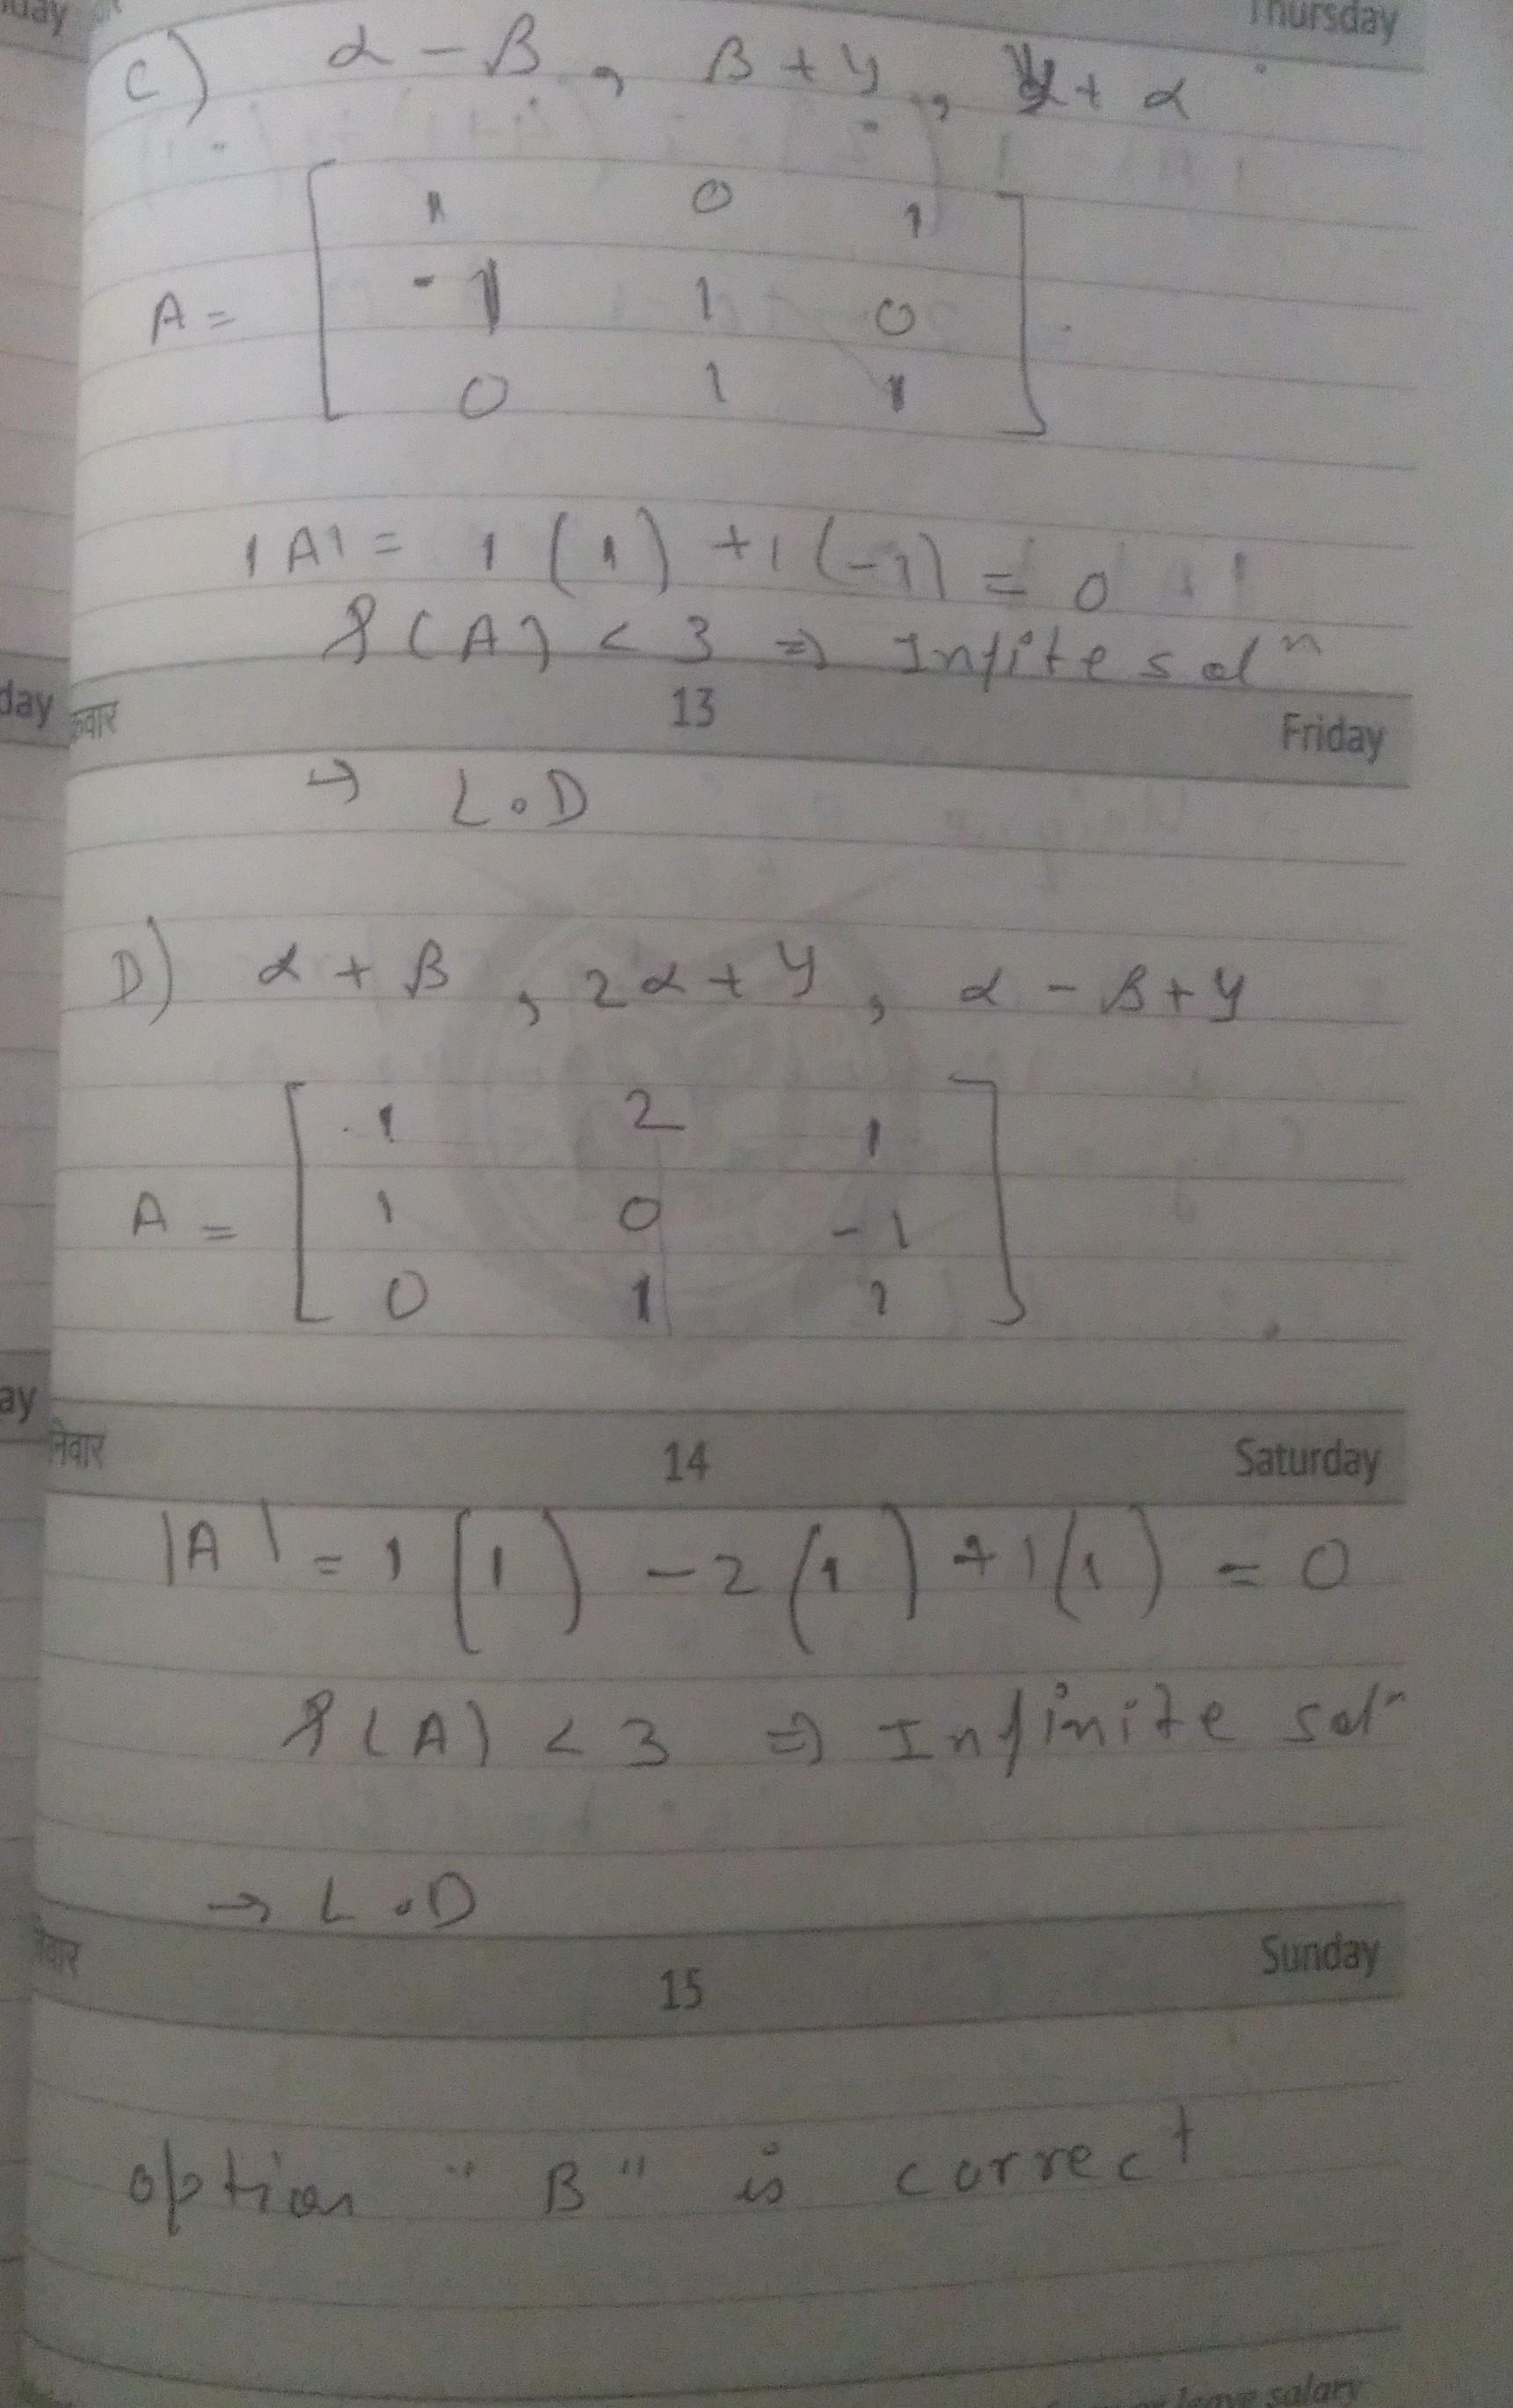 day
Thursday
C) α - β , β + y , y + α
1 0 1
A = -1 1 0
0 1 1
|A| = 1 (1) + 1 (-1) = 0
ρ(A) < 3 ⇒ Infite solⁿ
day
13 Friday
→ L.D
D) α + β , 2α + y , α - β + y
1 2 1
A = 1 0 -1
0 1 1
ay
14 Saturday
|A| = 1 (1) - 2 (1) + 1 (1) = 0
ρ(A) < 3 ⇒ Infinite solⁿ
→ L.D
15 Sunday
option "B" is correct
leave salary